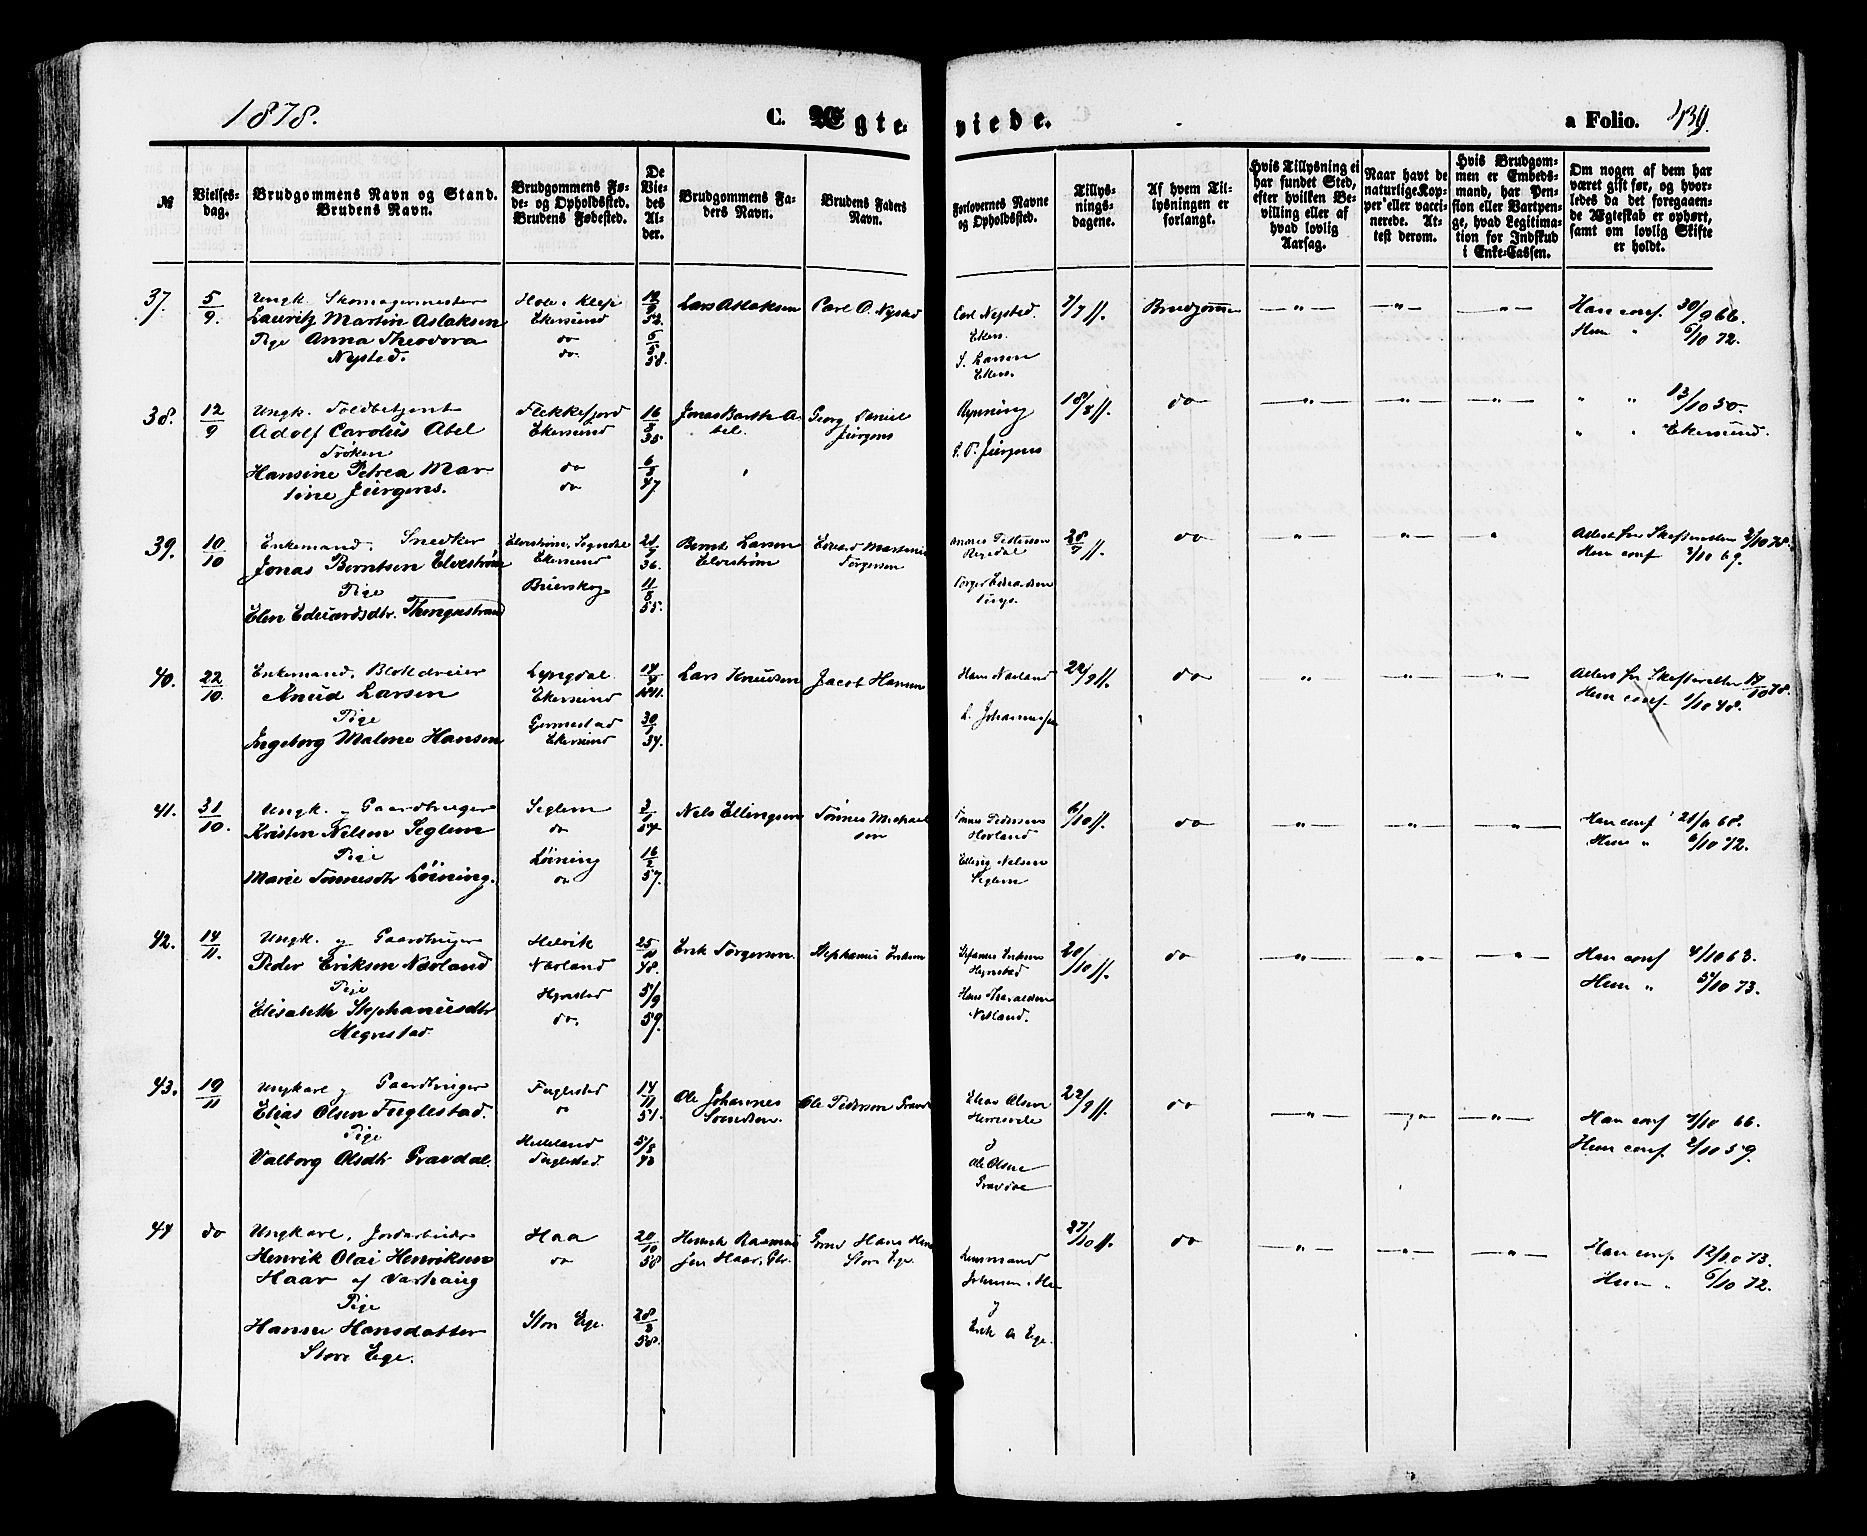 1878.
C. Ægte-
viede.
a Folio. 439.
№
Vielses-
dag.
Brudgommens Navn og Stand.
Brudens Navn.
Brudgommens Fø-
de- og Opholdssted.
Brudens Fødested.
De
Vie-
des
Al-
der.
Brudgommens Fa-
ders Navn.
Brudens Faders
Navn.
Forlovernes Navne
og Opholdssted.
Tillys-
nings-
dagene.
Af hvem Til-
lysningen er
forlangt.
Hvis Tillysning ei
har fundet Sted,
efter hvilken Be-
villing eller af
hvad lovlig
Aarsag.
Naar havt de
naturlige Kop-
per eller vacci-
nerede. At-
test derom.
Hvis Brudgom-
men er Embeds-
mand, har Pen-
sion eller Vartpen-
ge, hvad Legitima-
tion for Indskud
i Enke-Cassen.
Om nogen af dem har
været gift før, og hvor-
ledes da det foregaaen-
de Ægteskab er ophørt,
samt om lovlig Skifte
er holdt.
37. 5/9. Ungk. Skomagermester
Lauritz Martin Aslaksen
Pige Anna Theodora
Nysted.
Hole, Klep
Ekersund
do
do.
12/9 52.
6/5 58.
Lars Aslaksen
Carl O. Nysted
Carl Nysted.
Ekers.
S. Larsen
Ekers.
7/7 ff.
Brudgommen
— " — — " — — " —
Han conf. 30/9 66.
Hun " 6/10 72.
38. 12/9 Ungk. Toldbetjent
Adolf Carolus Abel
Frøken
Hansine Petrea Mar-
tine Jürgens.
Flekkefjord
Ekersund
do
do
16/8 35
6/8 47.
Jonas Barth A-
bel.
Georg Daniel
Jürgens
Rynning
G. D. Jürgens
18/8 ff.
do
— " — — " — — " —
" " 13/10 50.
" " Ekersund.
39. 10/10 Enkemand, Snedker
Jonas Berntsen Elvestrøm
Pige
Elen Edvardsdtr. Tengsstrand
Elvestrøm, Sogndal
Ekersund
Birkerskog
21/9 36.
11/8 55.
Bernt Larsen
Elvestrøm
Edvard Martinius
Torgersen
Hegedal
Torger Edvardsen
28/7 ff.
do
— " — — " — "
Attest fra Skifteretten 3/10 78.
Hun conf. 3/10 69.
40. 22/10. Enkemand, Blokdreier
Knud Larsen
Pige
Ingeborg Malene Hansen
Lyngdal
Ekersund
Gjermestad
Ekersund
14/4 1841.
30/1 34.
Lars Knudsen
Jacob Hansen
Hans Nærland
L. Johannessen
22/9 ff.
do
" — " — — " —
Attest fra Skifteretten 17/10 78.
Hun conf. 1/10 48.
41. 31/10. Ungk. og Gaardbruger
Kristen Nelsen Seglem
Pige
Marie Tønnesdtr Løining.
Seglem
do
Løining
do
3/1 54
16/2 57.
Nels Ellingsen
Tønnes Michael-
sen
Tønnes Pedersen
Hovland
Elling Nelsen
Seglem
6/10 ff.
do
— " — — " — — " —
Han conf 21/6 68.
Hun " 6/10 72.
42. 14/11. Ungk. og Gaardbruger
Peder Eriksen Nærland
Pige
Elisabeth Stephanusdtr
Hegrestad
Helvik
Nærland
Hgrestad
do.
25/11 48.
5/9 59.
Erik Torgersen.
Stephanus Eriksen
Stefanus Eriksen
Hgrestad
Hans Thoraldsen
Netland.
20/10 ff.
do
— " — — " — — " —
Han conf 4/10 63.
Hun " 5/10 73.
43. 19/11 Ungkarl og Gaardbruger
Elias Olsen Fuglestad.
Pige
Valborg Olsdtr Gravdal.
Fuglestad
do
Helleland
Fuglestad.
14/11 51.
5/8 43
Ole Johannes
Svendsen.
Ole Pedersen Gravdal
Elias Olsen
og
Ole Olsen
Gravdal
22/9 ff.
do
— " — — " — — " —
Han conf 7/10 66.
Hun conf. 2/10 59.
44 do Ungkarl, Jordarbeider
Henrik Olai Henriksen
Haar af Varhaug
Pige
Hansine Hansdatter
Store Ege.
Haa
do
Store Ege.
20/10 58
28/3 58.
Henrik Rasmus-
sen Haar, Gbr.
Gmd Hans Hen
Store Ege.
Lensmand
og
Erik A Ege.
27/10 ff.
do
— " — — " — — " —
Han conf. 12/10 73.
Hun " 6/10 72.